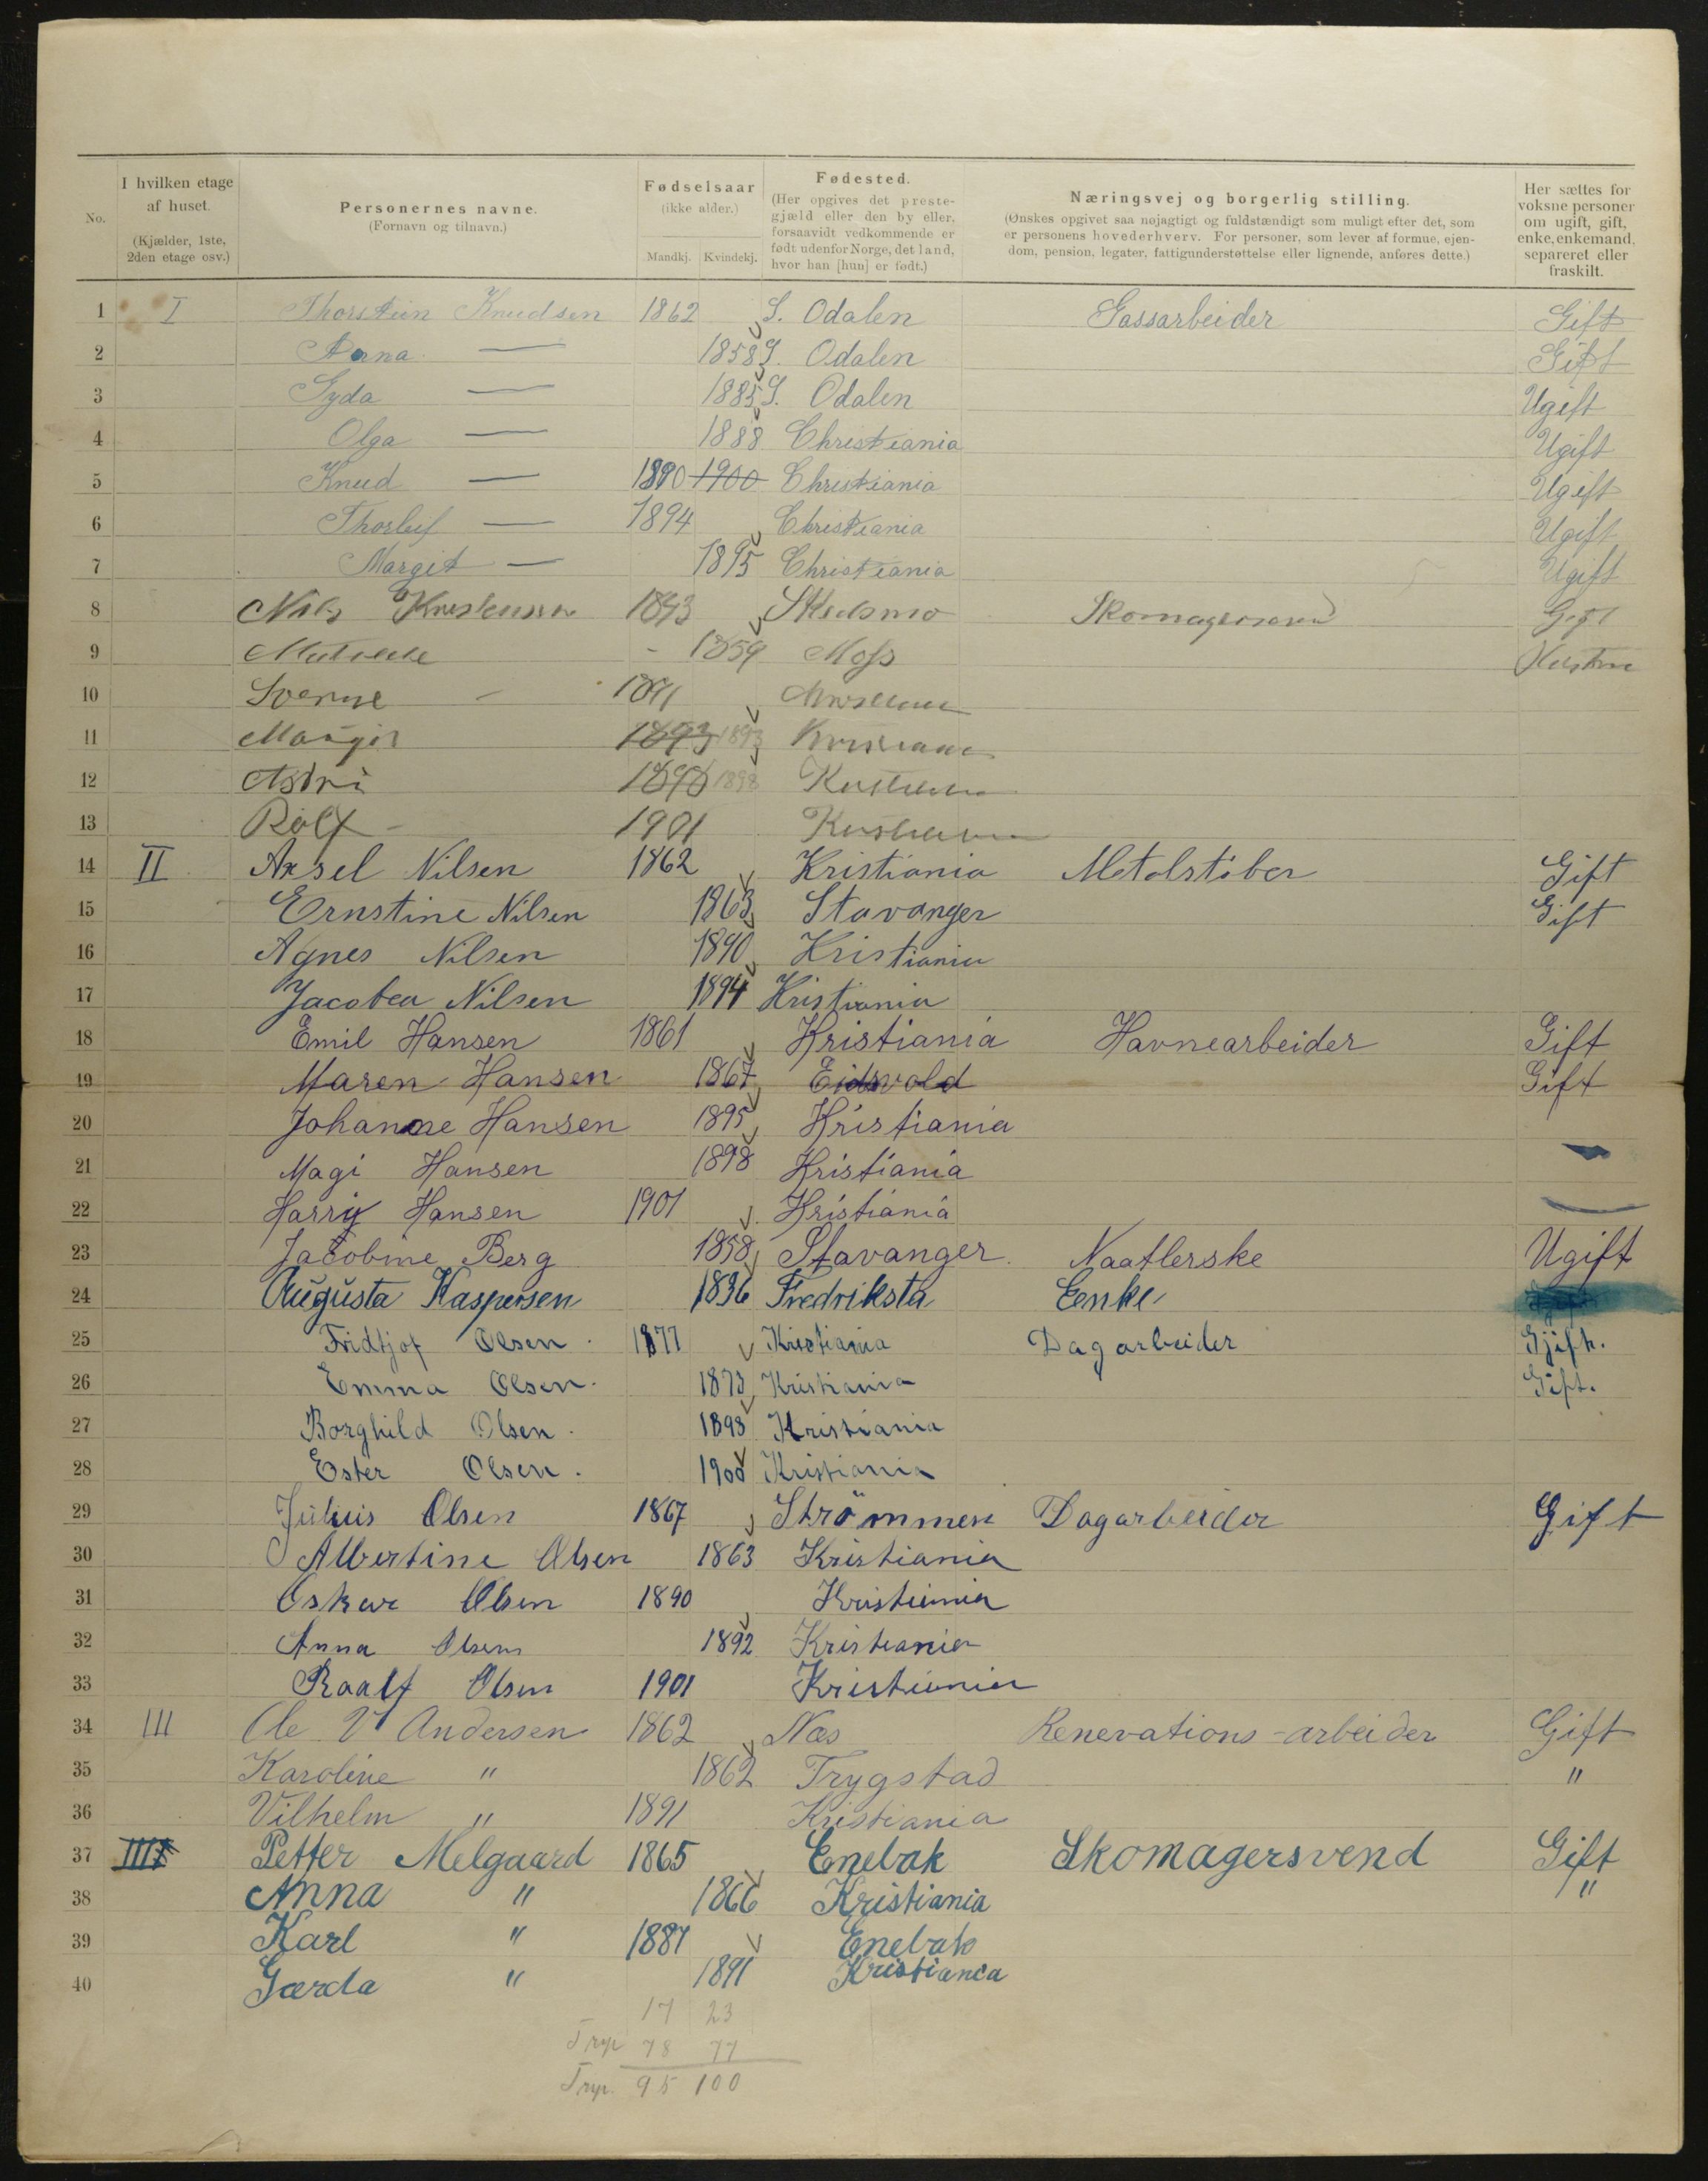 No.
I hvilken etage af huset.
(Kjælder, 1ste, 2den etage osv.)
Personernes navne.
(Fornavn og tilnavn.)
Fødselsaar
(ikke alder.)
Mandkj. Kvindekj.
Fødested.
(Her opgives det preste-
gjæld eller den by eller,
forsaavidt vedkommende er
født udenfor Norge, det land,
hvor han [hun] er født.)
Næringsvej og borgerlig stilling.
(Ønskes opgivet saa nøjagtigt og fuldstændigt som muligt efter det, som
er personens hovederhverv. For personer, som lever af formue, ejen-
dom, pension, legater, fattigunderstøttelse eller lignende, anføres dette.)
Her sættes for
voksne personer
om ugift, gift,
enke, enkemand,
separeret eller
fraskilt.
1 I Thorstein Knudsen 1862 S. Odalen Gassarbeider Gift
2 Anna — 1858 S. Odalen Gift
3 Gyda — 1885 S. Odalen Ugift
4 Olga — 1888 Christiania Ugift
5 Knud — 1890 1900 Christiania Ugift
6 Thorleif — 1894 Christiania Ugift
7 Margit — 1895 Christiania Ugift
8 Nils Kristensen Skedsmo Skomagersvend Gift
9 - 1859 Moss Hustru
10 Sverre -
11 1893 1893
12 Astri 1898 1898
13 Rolf - 1901
14 II Axsel Nilsen 1862 Kristiania Metalstöber Gift
15 Ernstine Nilsen 1863 Stavanger Gift
16 Agnes Nilsen 1890 Kristiania
17 Jacobea Nilsen 1894 Kristiania
18 Emil Hansen 1861 Kristiania Havnearbeider Gift
19 Maren Hansen 1867 Eidsvold Gift
20 Johanne Hansen 1895 Kristiania
21 Magi Hansen 1898 Kristiania
22 Harry Hansen 1901 Kristiania
23 Jacobine Berg 1858 Stavanger Naatlerske Ugift
24 Augusta Kaspersen 1836 Fredriksta Eenke
25 Fridtjof Olsen. 1877 Kristiania Dagarbeider Gjift.
26 Emma Olsen. 1873 Kristiania Gift.
27 Borghild Olsen. 1898 Kristiania
28 Ester Olsen. 1900 Kristiania
29 Julius Olsen 1867 Strömmen Dagarbeider Gift
30 Albertine Olsen 1863 Kristiania
31 Oskar Olsen 1890 Kristiania
32 Anna Olsen 1892 Kristiania
33 Raalf Olsen 1901 Kristiania
34 III Ole V Andersen 1862 Næs Renevations-arbeider Gift
35 Karoline " 1862 Trygstad "
36 Vilhelm " 1891 Kristiania
37 Petter Melgaard 1865 Enebak Skomagersvend Gift
38 Anna " 1866 Kristiania "
39 Karl " 1887 Enebak
40 Gærda " 1891 Kristiania
17 23
Tryp 78 77
Tryp. 95 100